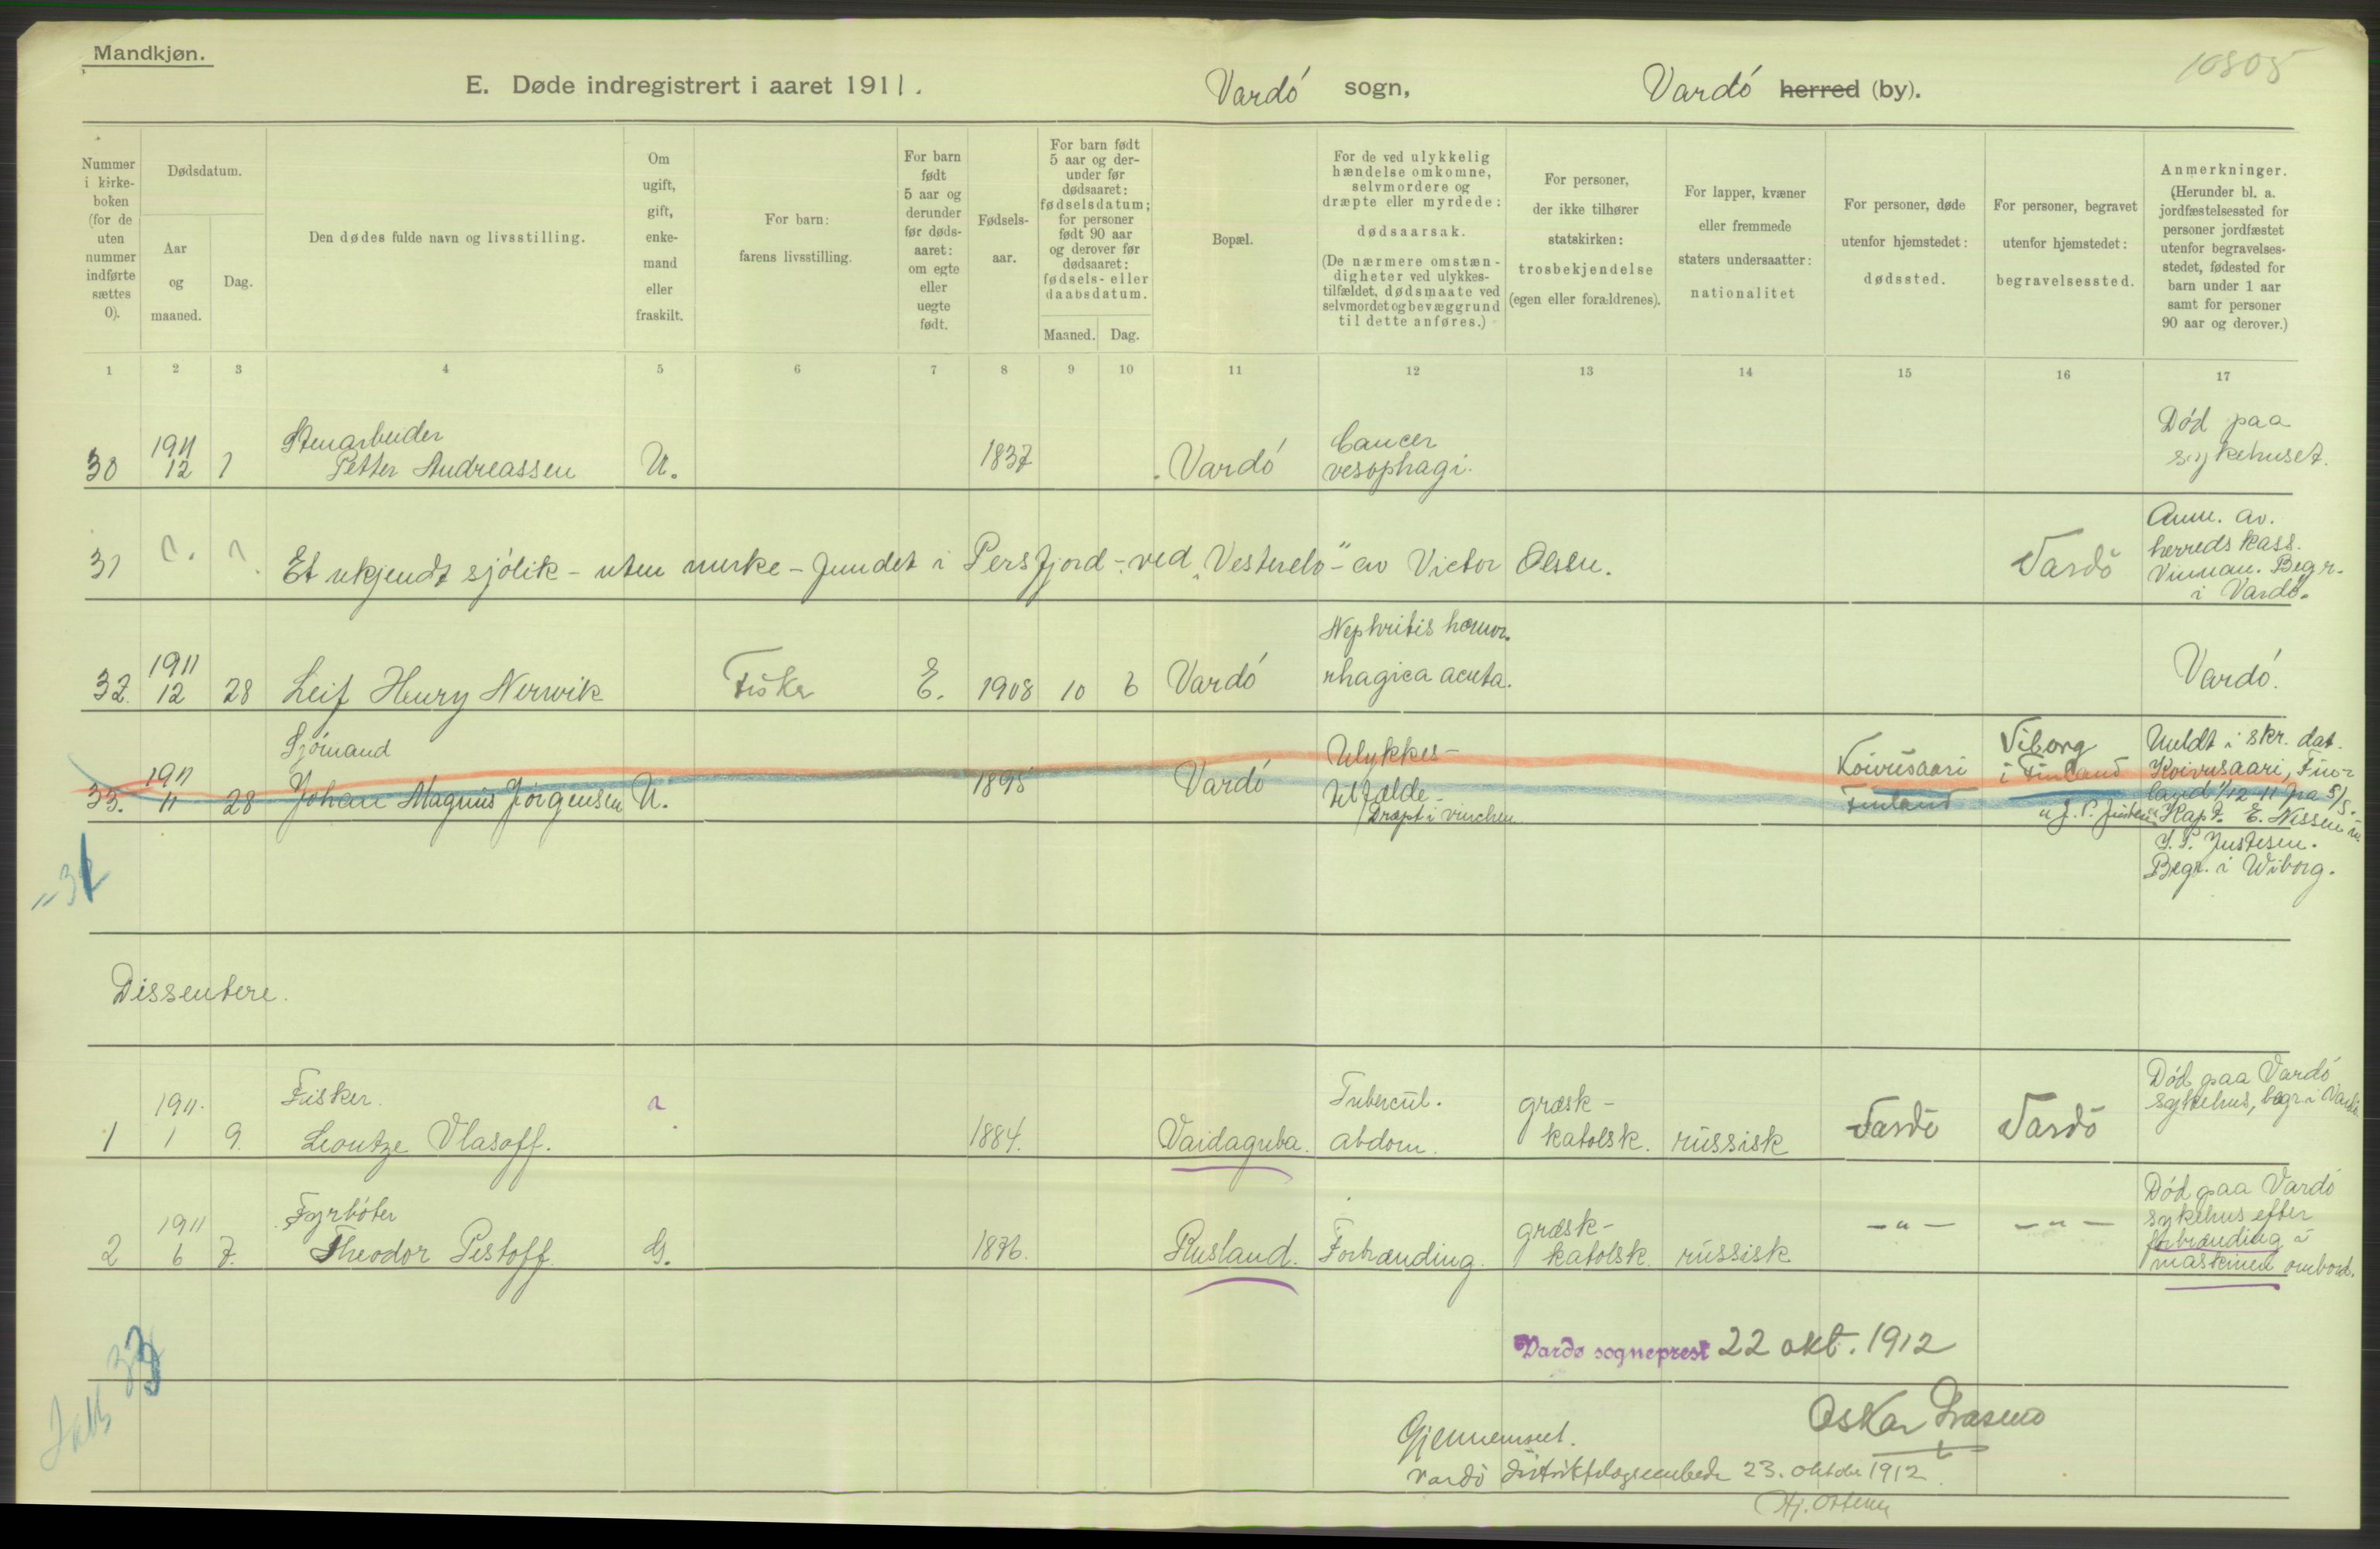 Mandkjøn.
10805
E. Døde indregistrert i aaret 1911. Vardó sogn, Vardó herred (by).
Nummer i kirke-boken (for de uten nummer indførte sættes 0).
Dødsdatum.
Aar og maaned.
Dag.
Den dødes fulde navn og livsstilling.
Om ugift, gift, enke-mand eller fraskilt.
For barn: farens livsstilling.
For barn født 5 aar og derunder før døds-aaret: om egte eller uegte født.
Fødsels-aar.
For barn født 5 aar og der-under før dødsaaret: fødselsdatum; for personer født 90 aar og derover før dødsaaret: fødsels- eller daabsdatum.
Maaned. Dag.
Bopæl.
For de ved ulykkelig hændelse omkomne, selvmordere og dræpte eller myrdede: dødsaarsak. (De nærmere omstæn-digheter ved ulykkes-tilfældet, dødsmaate ved selvmordet og bevæggrund til dette anføres.)
For personer, der ikke tilhører statskirken: trosbekjendelse (egen eller forældrenes).
For lapper, kvæner eller fremmede staters undersaatter: nationalitet
For personer, døde utenfor hjemstedet: dødssted.
For personer, begravet utenfor hjemstedet: begravelsessted.
Anmerkninger. (Herunder bl. a. jordfæstelsessted for personer jordfæstet utenfor begravelses-stedet, fødested for barn under 1 aar samt for personer 90 aar og derover.)
1 2 3 4 5 6 7 8 9 10 11 12 13 14 15 16 17
30 1911 12 1 Stenarbeider Petter Andreassen U. 1837 Vardó Cancer oesophagi. Død paa sykehuset.
31 ?. ?. Et ukjendt sjólik - uten merke - fundet i Persfjord - ved "Vesterelv" - av Victor Olsen. Vardö Anm. av. herredskass. Vinnan. Begr. i Vardó.
32. 1911 12 28 Leif Henry Nerwik Fisker E. 1908 10 6 Vardó Nephritis hæmor-rhagica acuta. Vardó.
33. 1911 11 28 Sjómand Johan Magnus Jørgensen U. 1895 Vardó Ulykkes-tilfælde - Dræpt i vinchen Koivusaari Finland Viborg i Finland "J. P. Justesen" Meldt i skr. dat. Koivusaari, Fin-land 1/12-11 fra S/S. Kapt. E. Nissen
J. P. Justesen.
Begr. i Wiborg.
Dissentere.
1 1911. 1 9. Fisker. Leontze Vlasoff. ? 1884. Vaidaguba. Tubercul. abdom. græsk-katolsk. russisk Vardö Vardö Død paa Vardó sykehus, begr. i Vardó
2 1911 6 7. Fyrbóter Theodor Pestoff. G. 1876. Rusland. Forbrænding. græsk-katolsk. russisk -"- -"- Død paa Vardó sykehus efter forbrænding i maskinen ombord.
33
Vardø sogneprest 22 okt. 1912
Gjennemset.
Vardö distriktslægeembede 23. oktober 1912